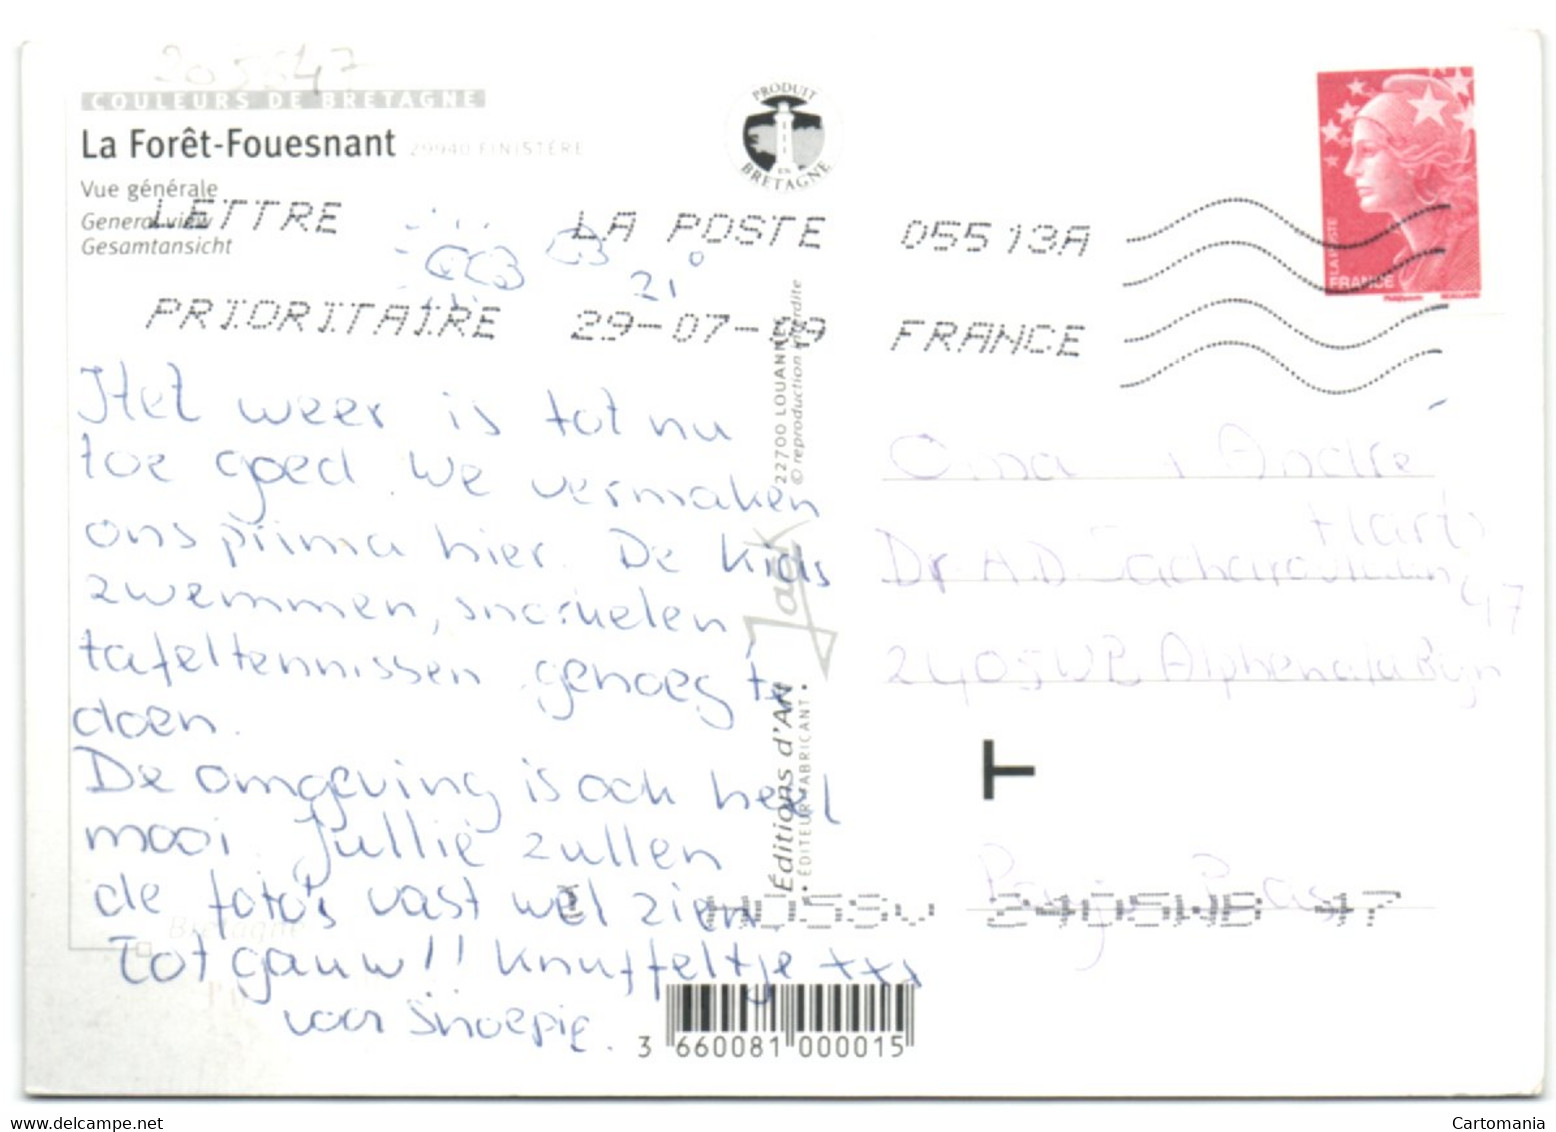 205647
COULEURS DE BRETAGNE
La Forêt-Fouesnant 29940 FINISTÈRE
Vue générale
General view
Gesamtansicht
PRODUIT EN BRETAGNE
LA POSTE
FRANCE
LETTRE LA POSTE 05513A
PRIORITAIRE 29-07-09 FRANCE
21°
Het weer is tot nu
toe goed. We vermaken
ons prima hier. De kids
zwemmen, snorkelen,
tafeltennissen genoeg te
doen.
De omgeving is ook heel
mooi. Jullie zullen
de foto's vast wel zien.
Tot gauw!! Knuffeltje xxx
voor Snoepie.
Éditions d'Art Jack
• ÉDITEUR FABRICANT •
22700 LOUANNEC
© reproduction interdite
Oma André
Dr. A.D.
47
2405WB Alphen a/d Rijn
T
Pays Bas
2405WB 47
Bretagne
3 660081 000015
Cartomania